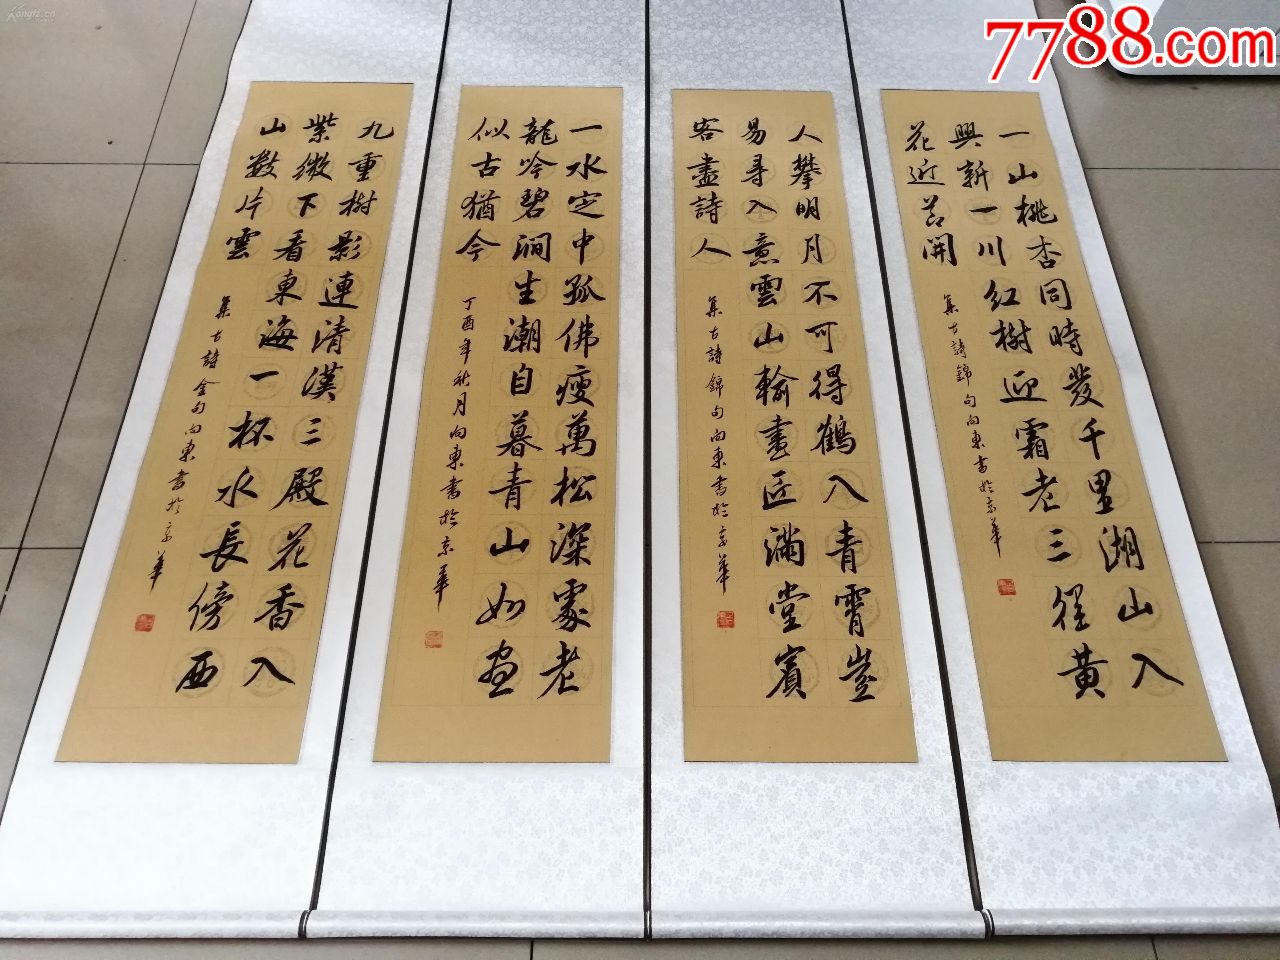 一山桃杏同時發千里湖山入
興新一川紅樹迎霜老三徑黃
花近节開
集古詩錦句向東書於京華
人攀明月不可得鶴入青霄豈
易尋入意雲山輸畫匠滿堂賓
客盡詩人
集古詩錦句向東書於京華
一水定中孤佛瘦萬松深處老
龍吟碧澗生潮自暮青山如画
似古猶今
丁酉年秋月向東書於京華
九重樹影連清漢三殿花香入
紫微下看東海一杯水長傍西
山數片雲
集古詩金句向東書於京華
7788.com
Kongfz.cn